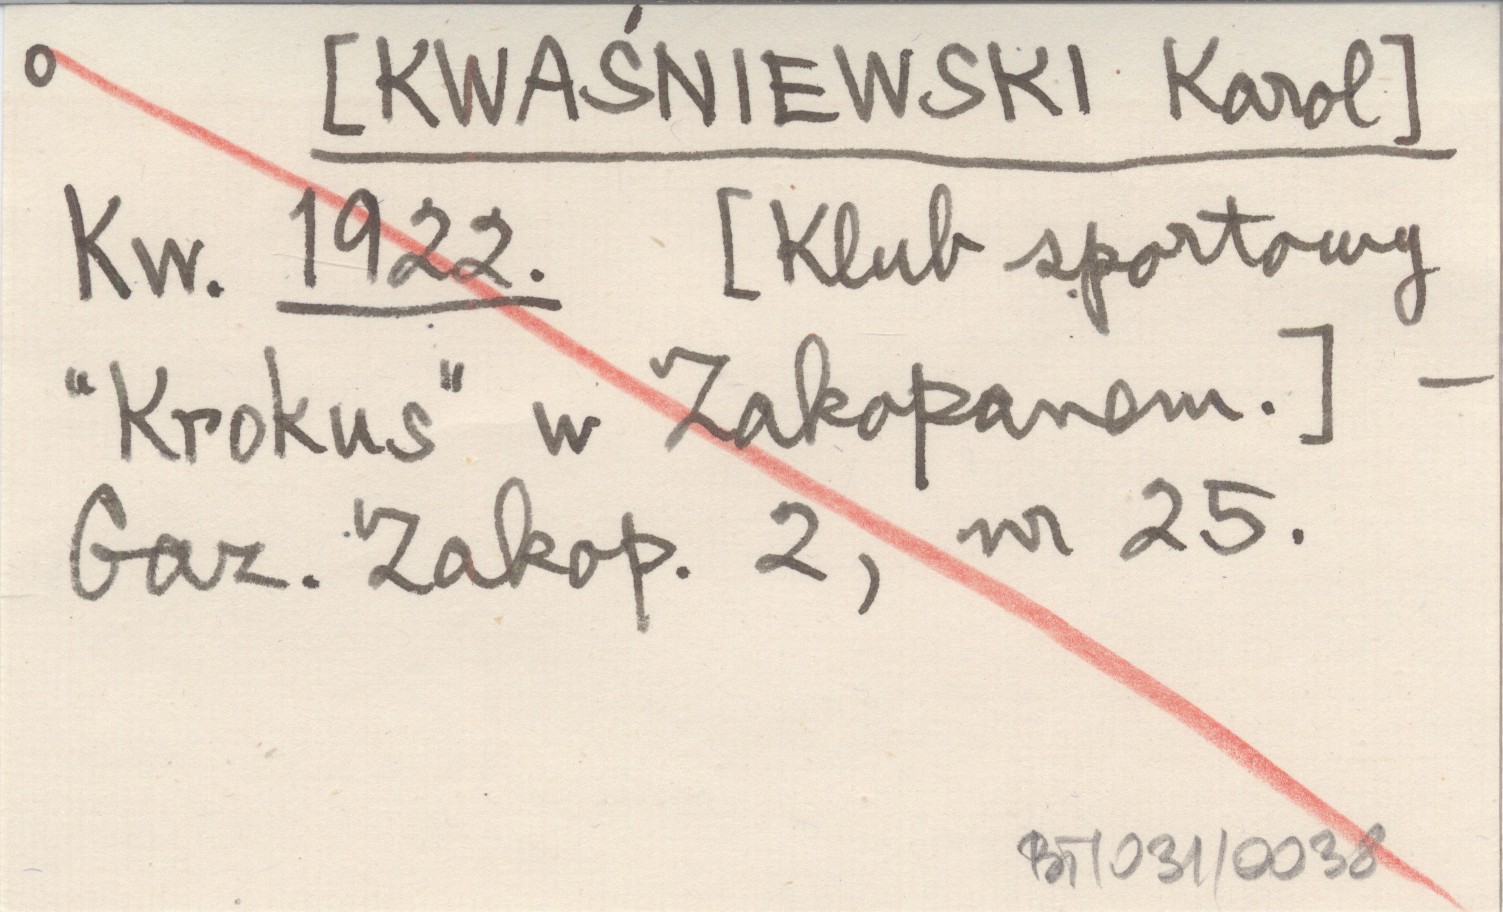 o [KWAŚNIEWSKI Karol]
Kw. 1922. [Klub sportowy
"Krokus" w Zakopanem.] —
Gaz. Zakop. 2, nr 25.
BT/031/0038